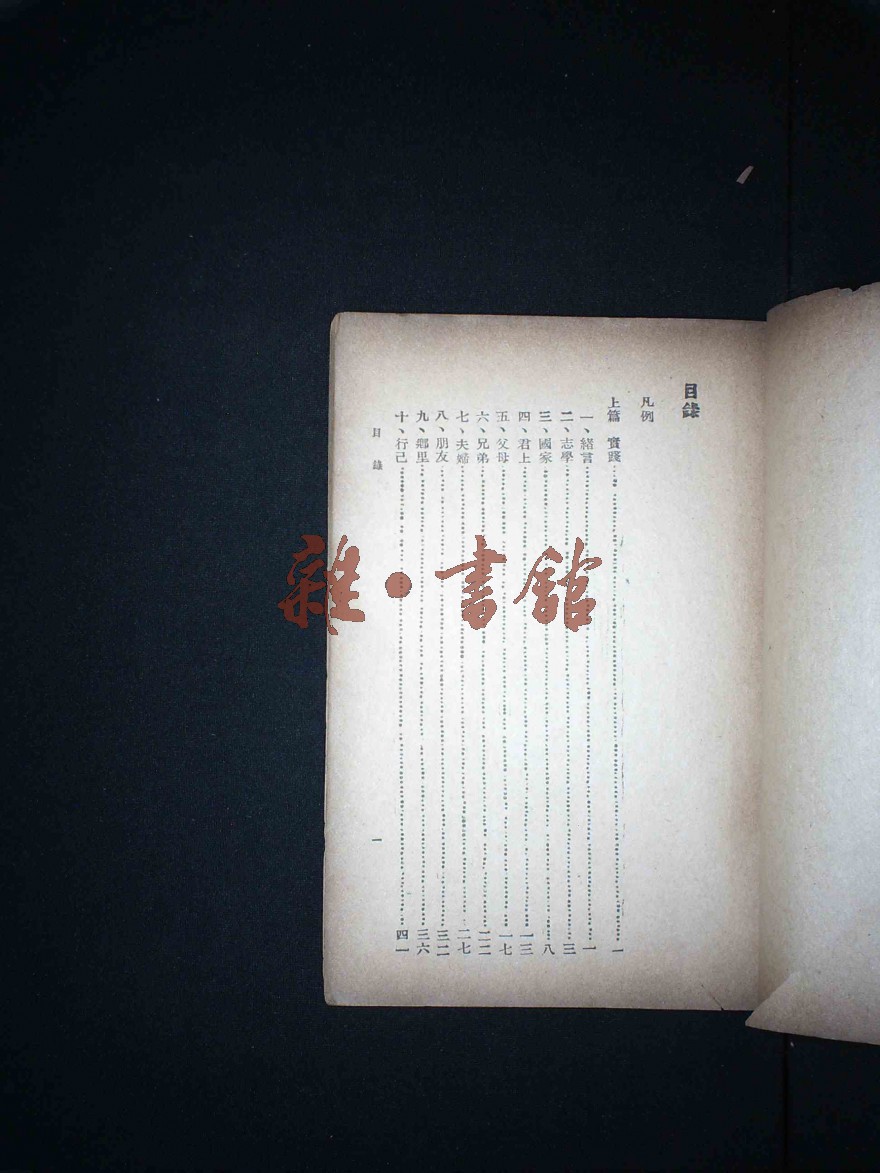 目錄
凡例
上篇 實踐……一
一、緒言……一
二、志學……三
三、國家……八
四、君上……一三
五、父母……一七
六、兄弟……二二
七、夫婦……二七
八、朋友……三二
九、鄉里……三六
十、行己……四一
目錄
一
雜·書館